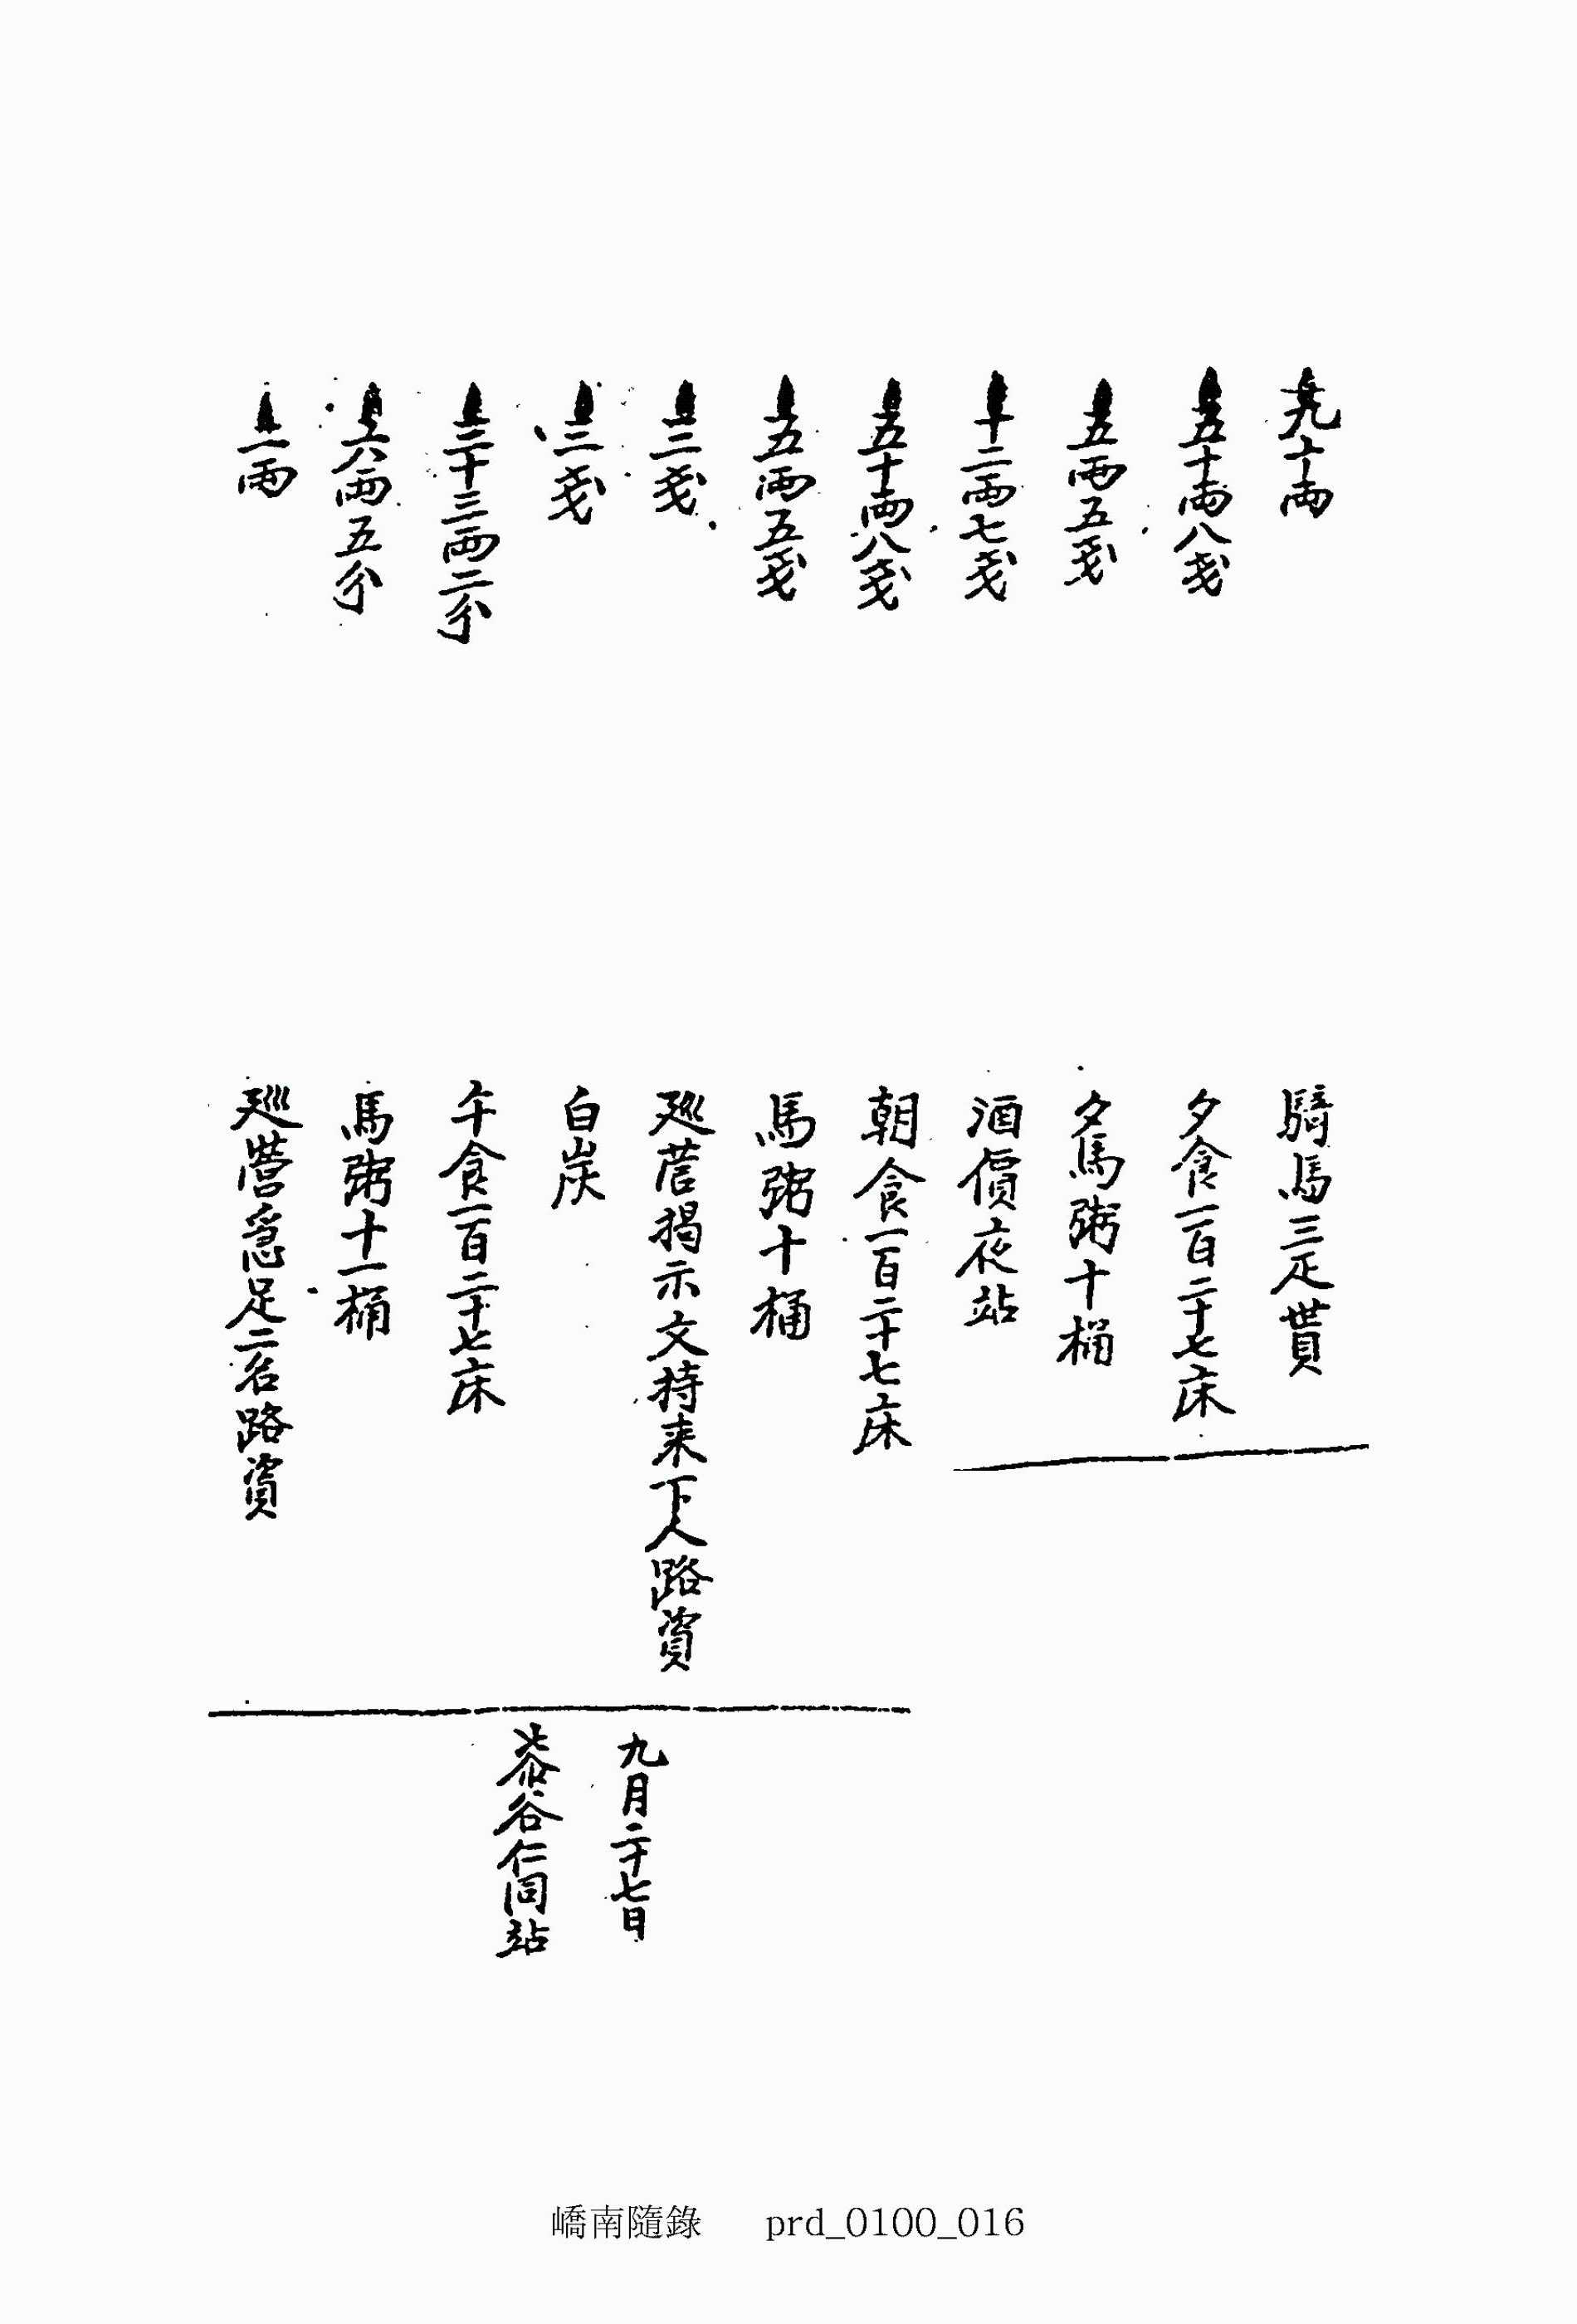 九十両 騎馬三疋貰
五十両八戔 夕食一百二十七床
五両五戔 夕馬粥十桶
十二両七戔 酒價夜站
五十両八戔 朝食一百二十七床
五両五戔 馬粥十桶
三戔 廵營揭示文持来下人路資
三戔 白炭
三十三両二分 午食一百二十七床
六両五分 馬粥十一桶
一両 廵營急足二名路資
九月二十七日
漆谷仁同站
嶠南隨錄 prd_0100_016